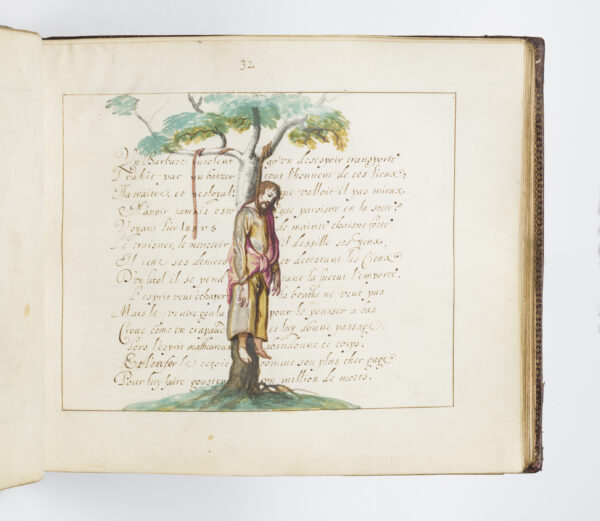 32
Vn Barbare Insolent qu'vn desespoir transporte
Trahit par vn baizer tout l'honneur de ces lieux:
Ha traitre, et desloyal, que valloit il pas mieux
N'avoir jamais esté que paroistre en la sorte?
Voyant lier IESVS de mainte chaisne forte
Et traisner, le il dessille ses yeux,
Il iette ses deniers et detestant les Cieux
D'vn licol il se pend tant la fureur l'emporte
L'esprit veut echaper la bouche ne veut pas
Mais le ventre goulu pour le pousser a bas
Creue come vn crapaud et luy donne passage
Lors l'esprit malheureux abandonne ce corps,
Et l'enfer le reçoit comme son plus cher gage
Pour luy faire gouster vn million de morts.